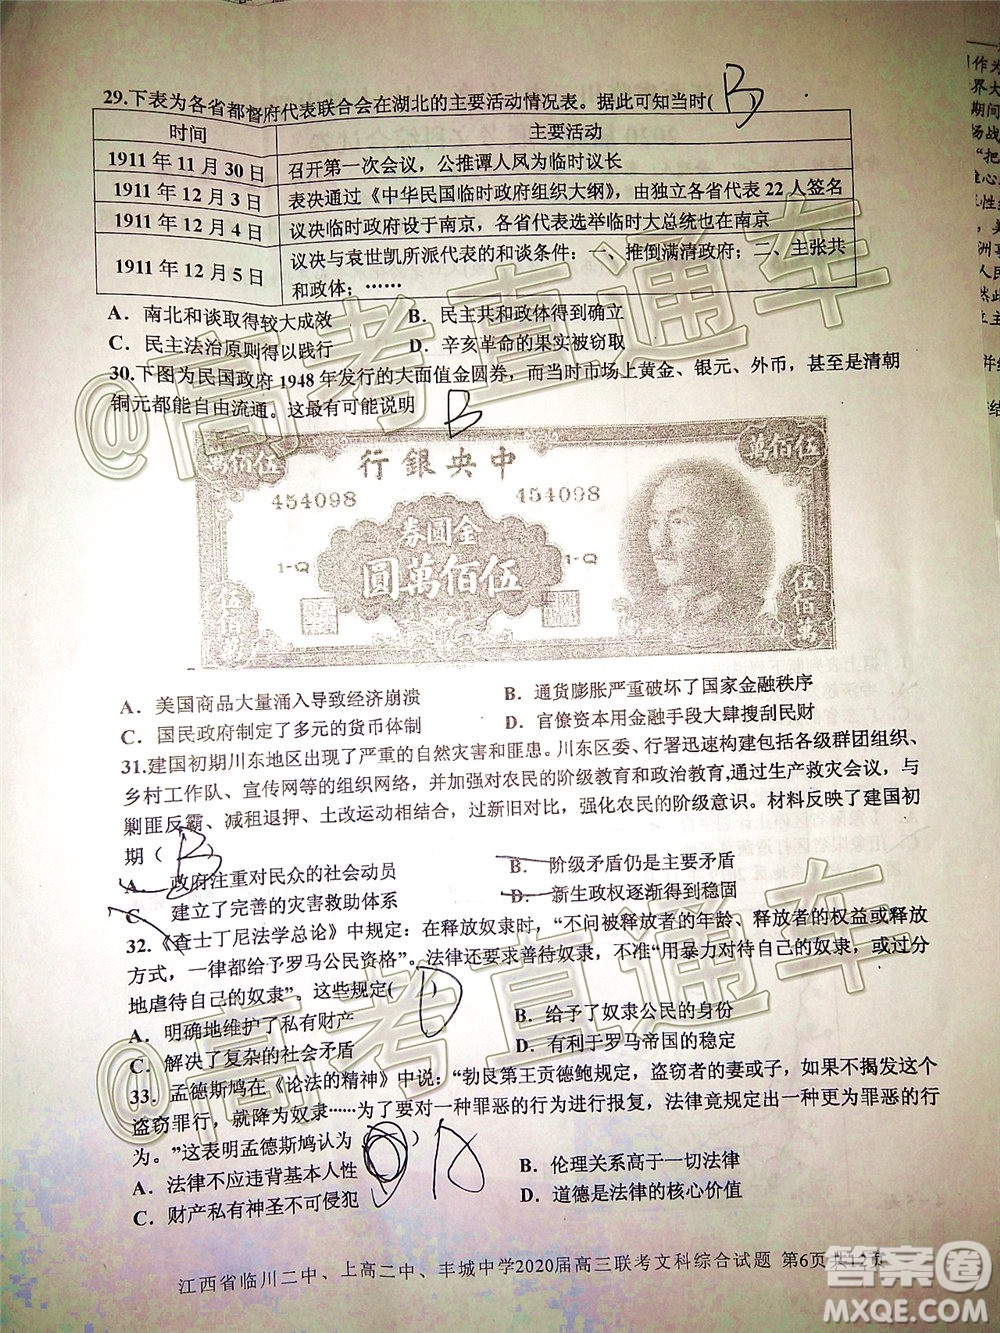 29.下表为各省都督府代表联合会在湖北的主要活动情况表。据此可知当时( B )
时间 主要活动
1911 年 11 月 30 日 召开第一次会议，公推谭人凤为临时议长
1911 年 12 月 3 日 表决通过《中华民国临时政府组织大纲》，由独立各省代表 22 人签名
1911 年 12 月 4 日 议决临时政府设于南京，各省代表选举临时大总统也在南京
1911 年 12 月 5 日 议决与袁世凯所派代表的和谈条件：一、推倒满清政府；二、主张共
和政体；……
A． 南北和谈取得较大成效 B． 民主共和政体得到确立
C． 民主法治原则得以践行 D． 辛亥革命的果实被窃取
30.下图为民国政府 1948 年发行的大面值金圆券，而当时市场上黄金、银元、外币，甚至是清朝
铜元都能自由流通。这最有可能说明 B
萬佰伍 萬佰伍
行銀央中
454098 454098
券圓金
1-Q 1-Q
圓萬佰伍
伍佰萬 伍佰萬
A． 美国商品大量涌入导致经济崩溃 B． 通货膨胀严重破坏了国家金融秩序
C． 国民政府制定了多元的货币体制 D． 官僚资本用金融手段大肆搜刮民财
31.建国初期川东地区出现了严重的自然灾害和匪患。川东区委、行署迅速构建包括各级群团组织、
乡村工作队、宣传网等的组织网络，并加强对农民的阶级教育和政治教育,通过生产救灾会议、
剿匪反霸、减租退押、土改运动相结合，过新旧对比，强化农民的阶级意识。材料反映了建国初
期（ B
A． 政府注重对民众的社会动员 B． 阶级矛盾仍是主要矛盾
C． 建立了完善的灾害救助体系 D． 新生政权逐渐得到稳固
32.《查士丁尼法学总论》中规定：在释放奴隶时，“不问被释放者的年龄、释放者的权益或释放
方式，一律都给予罗马公民资格”。法律还要求善待奴隶，不准“用暴力对待自己的奴隶，或过分
地虐待自己的奴隶”。这些规定( D )
A． 明确地维护了私有财产 B． 给予了奴隶公民的身份
C． 解决了复杂的社会矛盾 D． 有利于罗马帝国的稳定
33． 孟德斯鸠在《论法的精神》中说：“勃良第王贡德鲍规定，盗窃者的妻或子，如果不揭发这个
盗窃罪行，就降为奴隶……为了要对一种罪恶的行为进行报复，法律竟规定出一种更为罪恶的行
为。”这表明孟德斯鸠认为（ ） D
A． 法律不应违背基本人性 B． 伦理关系高于一切法律
C． 财产私有神圣不可侵犯 D． 道德是法律的核心价值
江西省临川二中、上高二中、丰城中学2020届高三联考文科综合试题 第6页共12页
@高考直通车
@高考直通车
答案圈
MXQE.COM